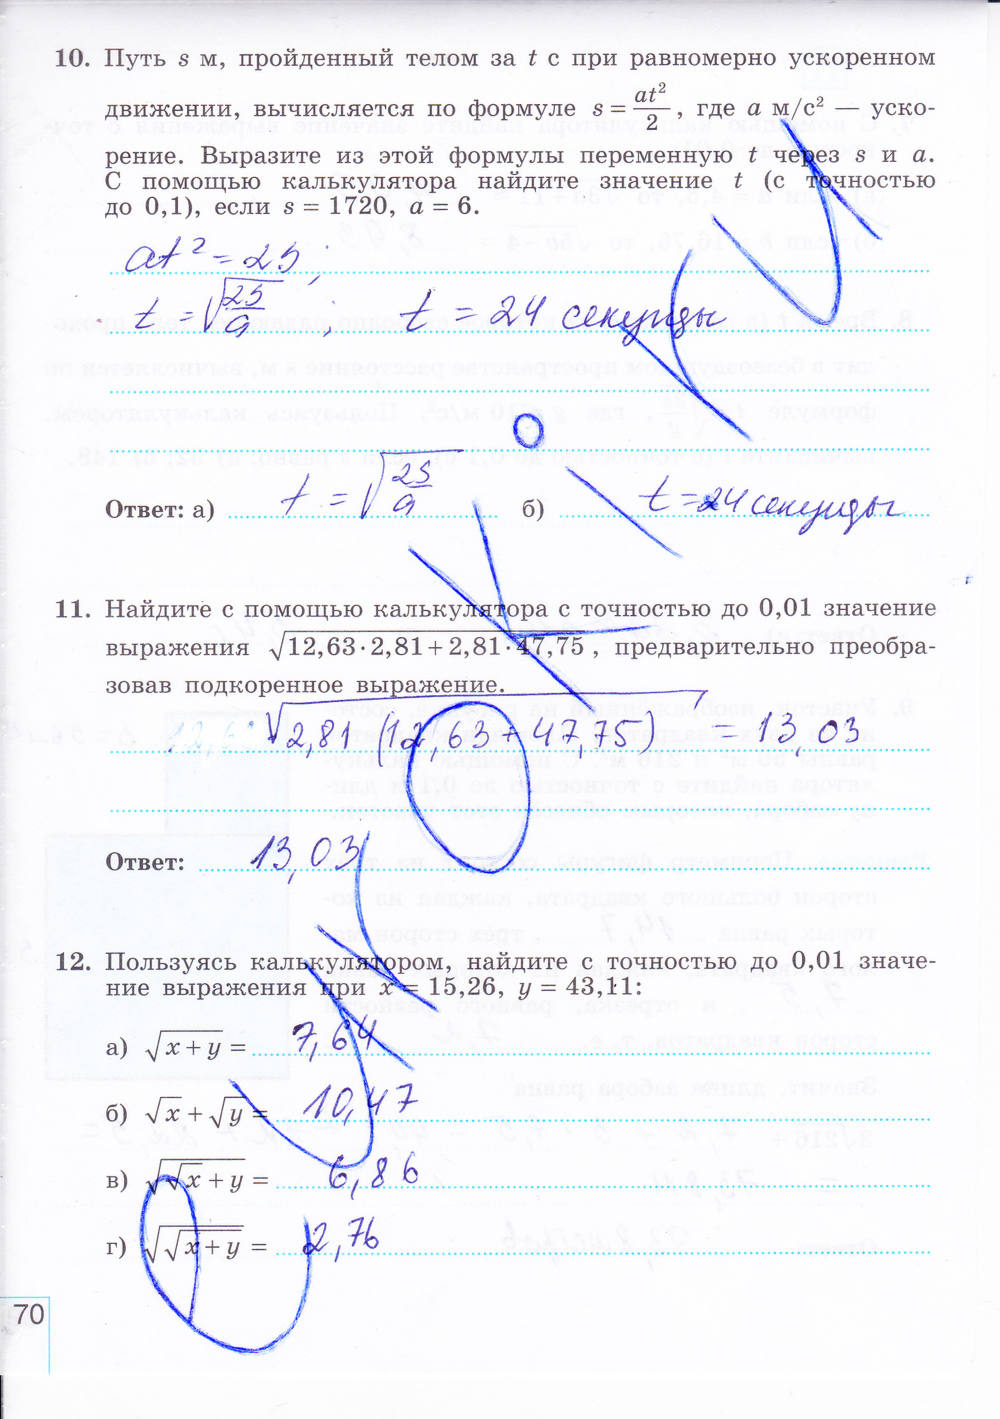 10. Путь s м, пройденный телом за t с при равномерно ускоренном
движении, вычисляется по формуле s = at²/2, где a м/с² — уско-
рение. Выразите из этой формулы переменную t через s и a.
С помощью калькулятора найдите значение t (с точностью
до 0,1), если s = 1720, a = 6.
at² = 2s ;
t = √(2s/a) ; t = 24 секунды
Ответ: а) t = √(2s/a) б) t = 24 секунды
11. Найдите с помощью калькулятора с точностью до 0,01 значение
выражения √(12,63 · 2,81 + 2,81 · 47,75), предварительно преобра-
зовав подкоренное выражение.
√(2,81 (12,63 + 47,75)) = 13,03
Ответ: 13,03
12. Пользуясь калькулятором, найдите с точностью до 0,01 значе-
ние выражения при x = 15,26, y = 43,11:
а) √(x + y) = 7,64
б) √x + √y = 10,47
в) √(√x + y) = 6,86
г) √(√(x + y)) = 2,76
70